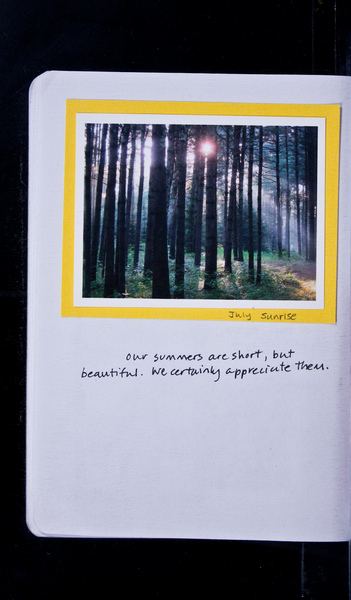 July sunrise
our summers are short, but
beautiful. We certainly appreciate them.